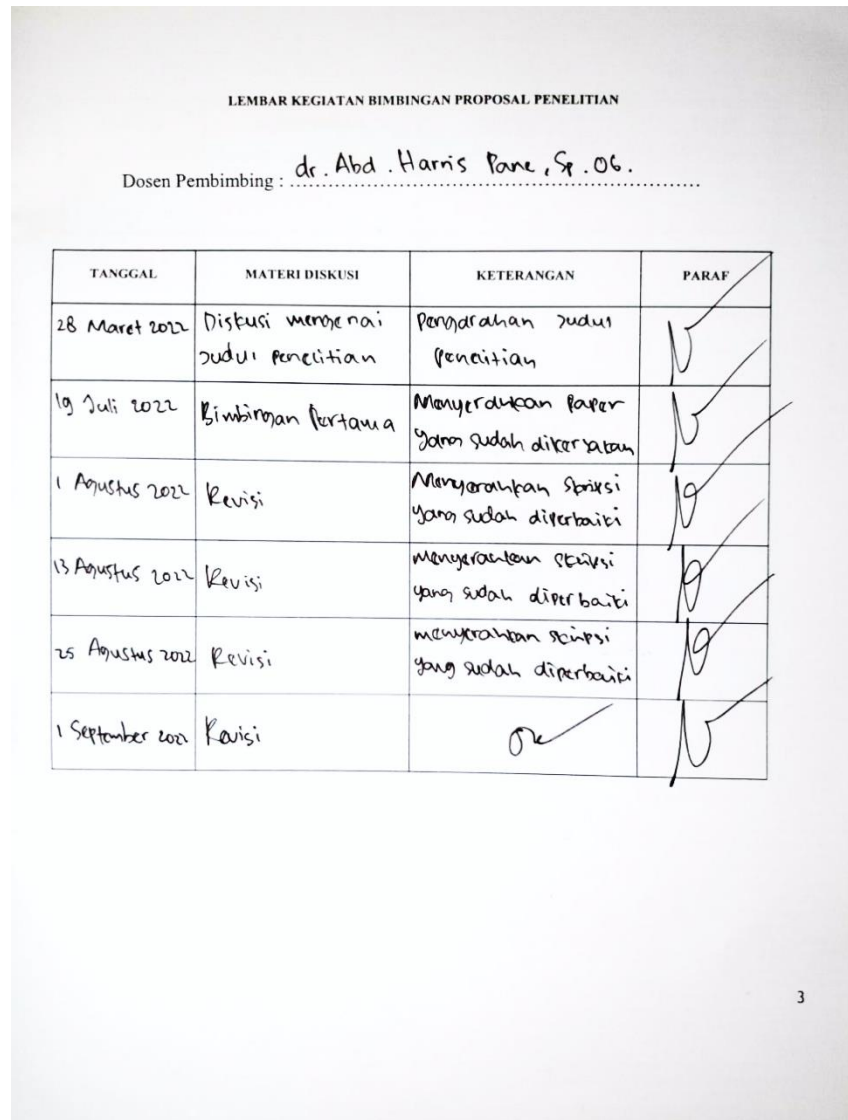 LEMBAR KEGIATAN BIMBINGAN PROPOSAL PENELITIAN
Dosen Pembimbing : dr. Abd. Harris Pane, Sp.OG.
TANGGAL MATERI DISKUSI KETERANGAN PARAF
28 Maret 2022 Diskusi mengenai Pengarahan Judul
Judul Penelitian Penelitian
19 Juli 2022 Bimbingan Pertama Menyerahkan Paper
yang sudah dikerjakan
1 Agustus 2022 Revisi Menyerahkan Skripsi
yang sudah diperbaiki
13 Agustus 2022 Revisi Menyerahkan Skripsi
yang sudah diperbaiki
25 Agustus 2022 Revisi menyerahkan skripsi
yang sudah diperbaiki
1 September 2022 Revisi Ok
3